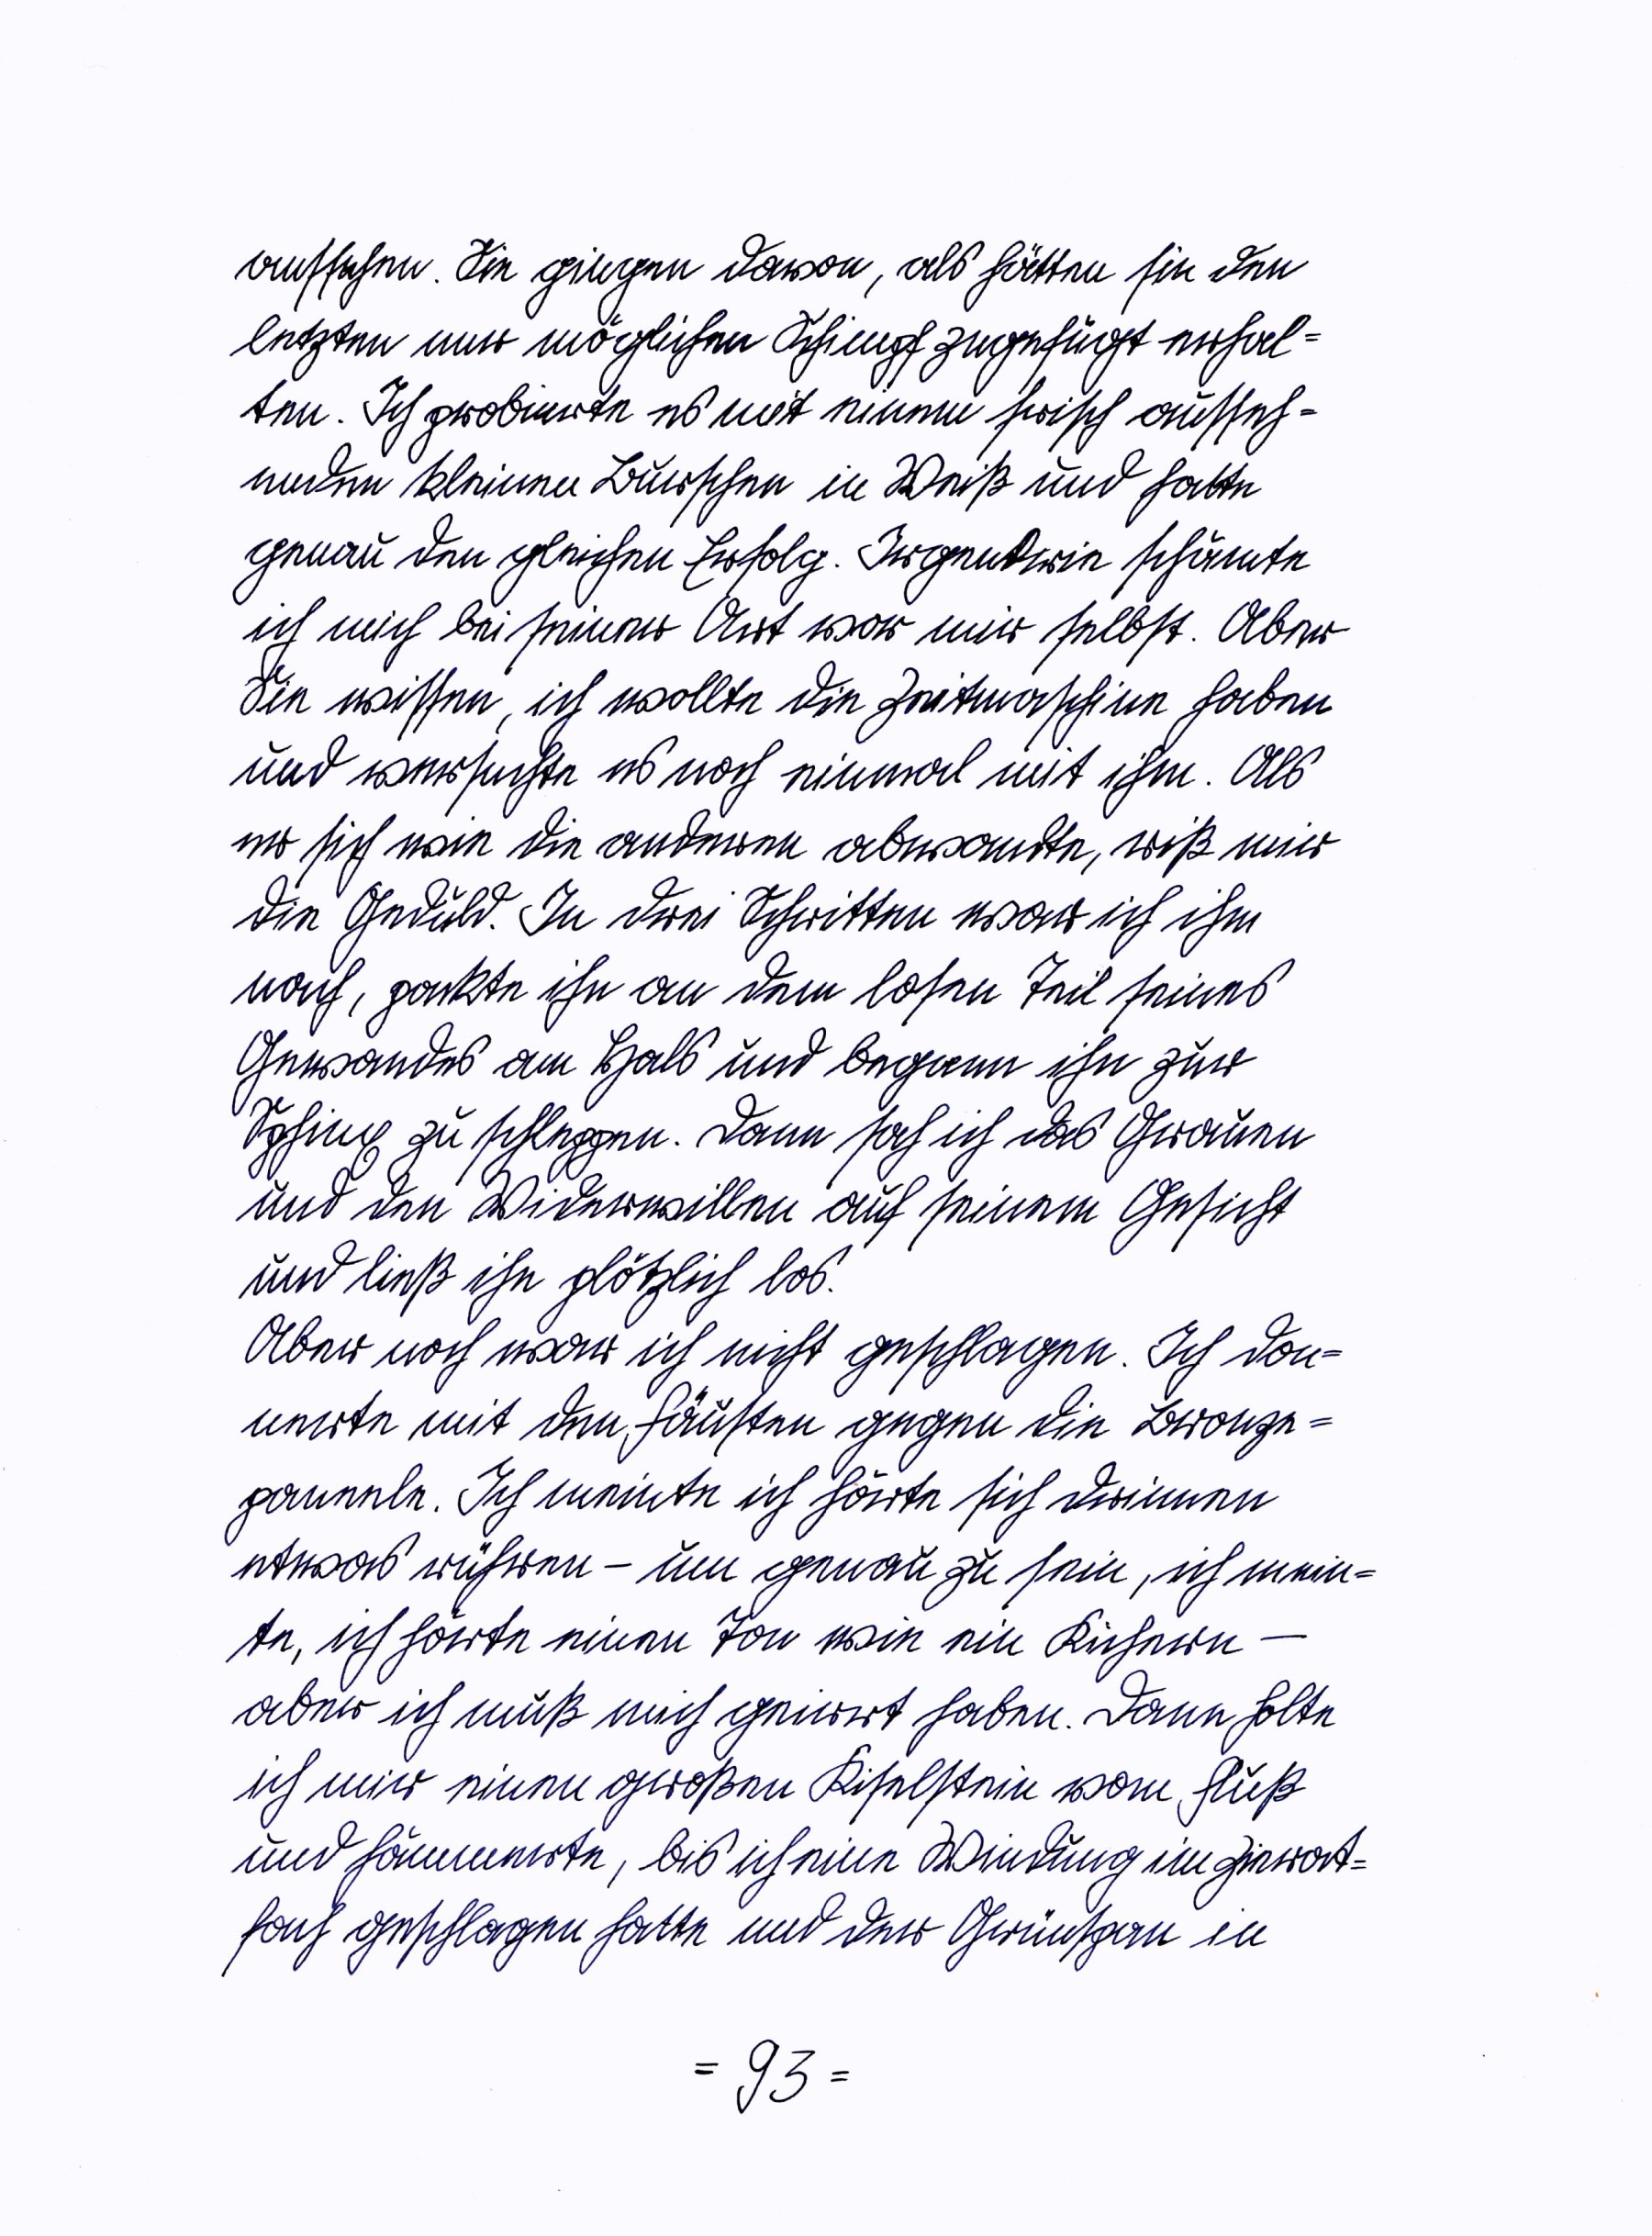 aussehen. Sie gingen davon, als hätten sie den
letzten nur möglichen Schimpf zugefügt erhal=
ten. Ich probierte es mit einem frisch ausseh=
enden kleinen Burschen in Weiß und hatte
genau den gleichen Erfolg. Irgendwie schämte
ich mich bei seiner Art vor mir selbst. Aber
Sie wissen, ich wollte die Zeitmaschine haben
und versuchte es noch einmal mit ihm. Als
er sich wie die anderen abwandte, riß mir
die Geduld. In drei Schritten war ich ihm
nach, packte ihn an dem losen Teil seines
Gewandes am Hals und begann ihn zur
Sphinx zu schleppen. Dann sah ich das Grauen
und den Widerwillen auf seinem Gesicht
und ließ ihn plötzlich los.
Aber noch war ich nicht geschlagen. Ich don=
nerte mit den Fäusten gegen die Bronze=
paneele. Ich meinte ich hörte sich drinnen
etwas rühren – um genau zu sein, ich mein=
te, ich hörte einen Ton wie ein Kichern –
aber ich muß mich geirrt haben. Dann holte
ich mir einen großen Kiselstein vom Fluß
und hämmerte, bis ich eine Windung im Zierat=
fach geschlagen hatte und der Grünspan in
= 93 =